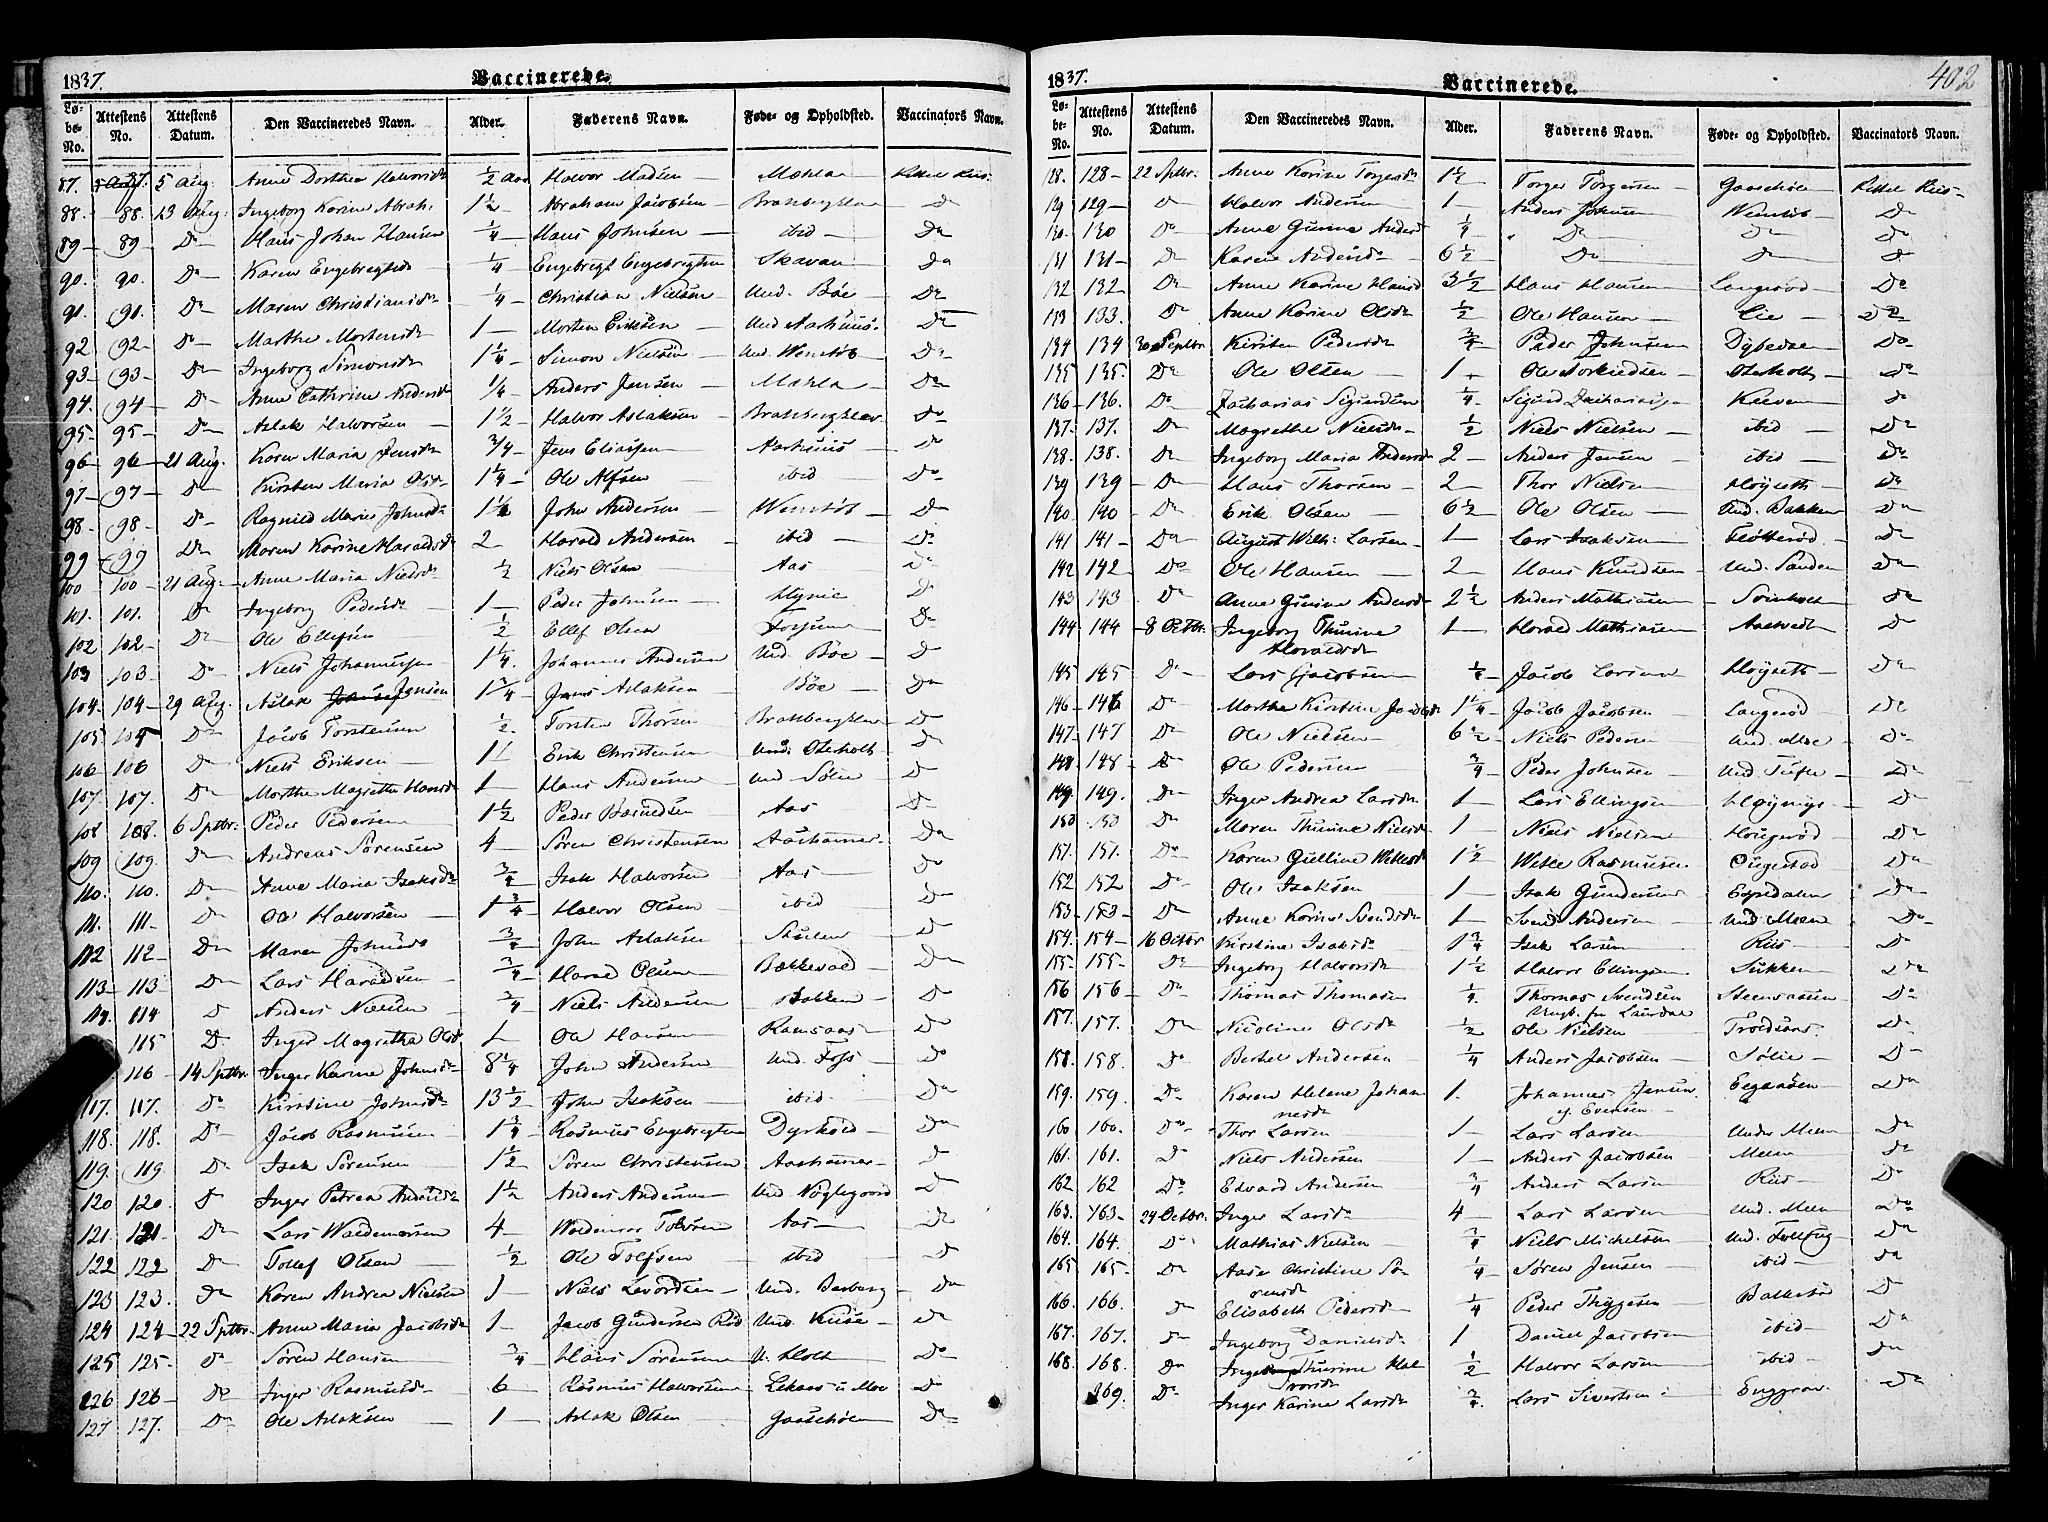 1837. Vaccinerede.
Lø-be-No. Attestens No. Attestens Datum. Den Vaccineredes Navn. Alder. Faderens Navn. Føde- og Opholdsted. Vaccinators Navn.
87. 5 Aug. Anne Dorthea Halvorsd. 1/2 Aar Halvor Madsen Mæhla
88. 88. 13 Aug. Ingeborg Karine Abrah. 1 1/2 Abraham Jacobsen D
89 89 Do Hans Johan Hansen 1/4 Hans Johnsen ibid Do
90. 90. Do Karen Engebregtsd. 1/4 Engebregt Engebregtsen Skavan Do
91. 91. Do Maren Christiansd. 1/4 Christian Nielsen Und. Böe Do
92 92 Do Marthe Mortensd. 1 Morten Eriksen Und Aarhuus. Do
93 93 Do Ingeborg Simonsd. 1 1/4 Simon Nielsen Und. Wenstöb Do
94. 94 Do Anne Cathrine Andersd. 1/4 Anders Jensen Mæhla Do
95 95 Do Aslak Halvorsen 1 1/2 Halvor Aslaksen Do
96 96 21 Aug. Karen Maria Jensd. 3/4 Jens Eliassen Aarhuus Do
97 97 Do Kirsten Maria Olsd. 1 1/4 Ole Alfsen ibid Do
98 98 Do Ragnild Marie Johnsd. John Andersen Wenstöb Do
99 99 Do Maren Karine Haraldsd. 2 Harald Andersen ibid Do
100 100 21 Aug. Anne Maria Nielsd. 1/2 Niels Olsen Aas Do
101. 101. Do Ingeborg Pedersd. 1 Peder Johnsen D
102 102 Do Ole Ellefsen 1/2 Ellef Olsen Do
103 103 Do Niels Johannessen 1 1/4. Johannes Andersen Und Böe D
104. 104 29 Aug. Aslak Jensen 1 3/4 Jens Aslaksen Böe Do
105 105 Do Jacob Torstensen 1/2. Torsten Thorsen D
106 106 D Niels Eriksen 1 Erik Christensen Und. Oterholt D
107. 107. Do Marthe Magrethe Hansd. 1 Hans Andersen Und Sölie D
108 108. 6 Sptbr. Peder Pedersen 1 1/2 Peder Aas D
109 109. Do Andreas Sörensen 4 Sören Christensen Do
110. 110. Do Anne Maria Isaksd. 3/4 Isak Halvorsen Aas Do
111. 111. Do Ole Halvorsen 1 3/4 Halvor Olsen ibid D
112 112 Do Maren Johnsd. 3/4 John Aslaksen D
113 113 Do Lars Haraldsen 3/4 Harald Olsen Do
114. 114 D Anders Nielsen 3/4 Niels Andersen Bakken D
115 D Inger Magretha Olsd. 1 Ole Hansen Ramsaas D
116 14 Sptbr. Inger Karine Johnsd. 8 1/4 John Andersen Und. Foss Do
117. 117. Do Kirstine Johnsd. 13 1/2 John Isaksen ibid Do
118. 118. Do Jacob Rasmusen 1 3/4 Rasmus Engebregtsen Do
119. 119. Do Isak Sörensen 1 1/2 Sören Christensen D
120 120. D Inger Petrea Andersd. 1 1/2 Anders Andersen Und Nöglegaard D
121. 121 Do Lars Waldemarsen 4 Waldemar Aas Do
122 122 Do Tollef Olsen 1/2 Ole Tolfsen ibid D
123 123. Do Karen Andrea Nielsen 1 Niels Do
124 124 22 Sptbr. Anne Maria Jacobsd. 1 Jacob Gundersen Do
125 125 Do Sören Hansen 3/4 Hans Sörensen U. Holt Do
126 126 Do Inger Rasmusd. 6 Rasmus Halvorsen D
127 127. Do Ole Aslaksen 1 Aslak Olsen Gaasehölen Do

1837. Vaccinerede. 402
Lø-be-No. Attestens No. Attestens Datum. Den Vaccineredes Navn. Alder. Faderens Navn. Føde- og Opholdsted. Vaccinators Navn.
128. 128 22 Sptbr. Anne Karine Torgersd. 1 1/2 Torger Torgersen
129 129 D Halvor Andersen 1 Anders Johnsen Wenstöb Do
130. 130 Do Anne Gurine Andersd. 1/4 Do Do Do
131 131 D Karine Andersd. 6 1/2 Do D Do
132 132 Do Anne Karine Hansd. 3 1/2 Hans Hansen Langeröd Do
133 133. Do Anne Karine Olsd. 1/2 Ole Hansen Lie Do
134 134 30 Septbr. Kirsten Pedersd. 3/4 Peder Johnsen Do
135 135. Do Ole Olsen 1 Ole Oterholt Do
136 136. Do Zacharias Sigurdsen 1/4 Sigurd Zachariass. Do
137. 137. Do Magrethe Nielsd. 1/2 Niels Nielsen ibid Do
138. 138. Do Ingeborg Maria Andersd. 2 Anders Jensen ibid Do
139 139 Do Hans Thorsen 2 Thor Nielsen Höyseth Do
140 140 Do Erik Olsen 6 1/2 Ole Olsen Und. Bakken Do
141 141 Do August Wilh. Larsen 1 Lars Isaksen Do
142 142 Do Ole Hansen 2 Hans Knudsen Und. Sanden Do
143 143 Do Anne Gurine Andersd. 2 1/2 Anders Mathiasen Do
144 144 8 Octbr. Ingeborg Thurine Haraldsd. 1 Harald Mathiasen D
145 145 D Lars Jacobsen Jacob Larsen Höyseth Do
146 146 Do Marthe Kirstine Jacobsd. 1 1/4 Jacob Jacobsen Langeröd Do
147 147 Do Ole Nielsen 6 1/2 Niels Pedersen Und. Moe Do
148 148 Do Ole Pedersen 3/4 Peder Johnsen Und Tufte Do
149. 149. Do Inger Andrea Larsd. 1 Lars Ellingsen D
150 150 Do Maren Thurine Nielsd. 1 Niels Nielsen Do
151. 151. Do Karen Gulline Wetlesd. 1 1/2 Wetle Rasmusen Do
152 152 Do Ole Isaksen 1 Isak Gundersen Espedalen Do
153 153 Do Anne Karine Svendsd. 1 Svend Andersen Und Meen Do
154. 154 16 Octbr. Kirstine Isaksd. 1 3/4 Isak Larsen Riis D
155 155 Do Ingeborg Halvorsd. 1 1/2 Halvor Ellingsen Do
156 156 Do Thomas Thomasen 1/4. Thomas Svendsen Ungk. fra Laurdal Do
157. 157. Do Nicoline Olsd. 1/2 Ole Nielsen Do
158. 158. Do Berthel Andersen 1/4 Anders Jacobsen Sölie D
159. 159. Do Karen Helene Johannesd. 1. Johannes Jensen ej. Evensen Do
160 160. Do Thor Larsen 1 Lars Larsen Under Meen Do
161. 161. D Niels Andersen 1 Anders Jacobsen Meen D
162 162 Do Edvard Andersen 3/4 Anders Larsen Riis D
163. 163 24 Octbr. Inger Larsd. 4 Lars Larsen Und. Meen Do
164. 164. D Mathias Nielsen 3/4 Niels Michelsen Do
165 165. Do Aase Christine Sörensd. 1/4 Sören Jensen ibid Do
166. 166. Do Elisabeth Pedersd. 1/4 Peder Thygesen D
167. 167. Do Ingeborg Danielsd. 1 Daniel Jacobsen ibid Do
168. 168. Do Thurine Halvorsd. 1/2 Halvor Larsen ibid Do
169. Do Inger Karine Larsd. 3/4 Lars Siversen Enggrav. Do